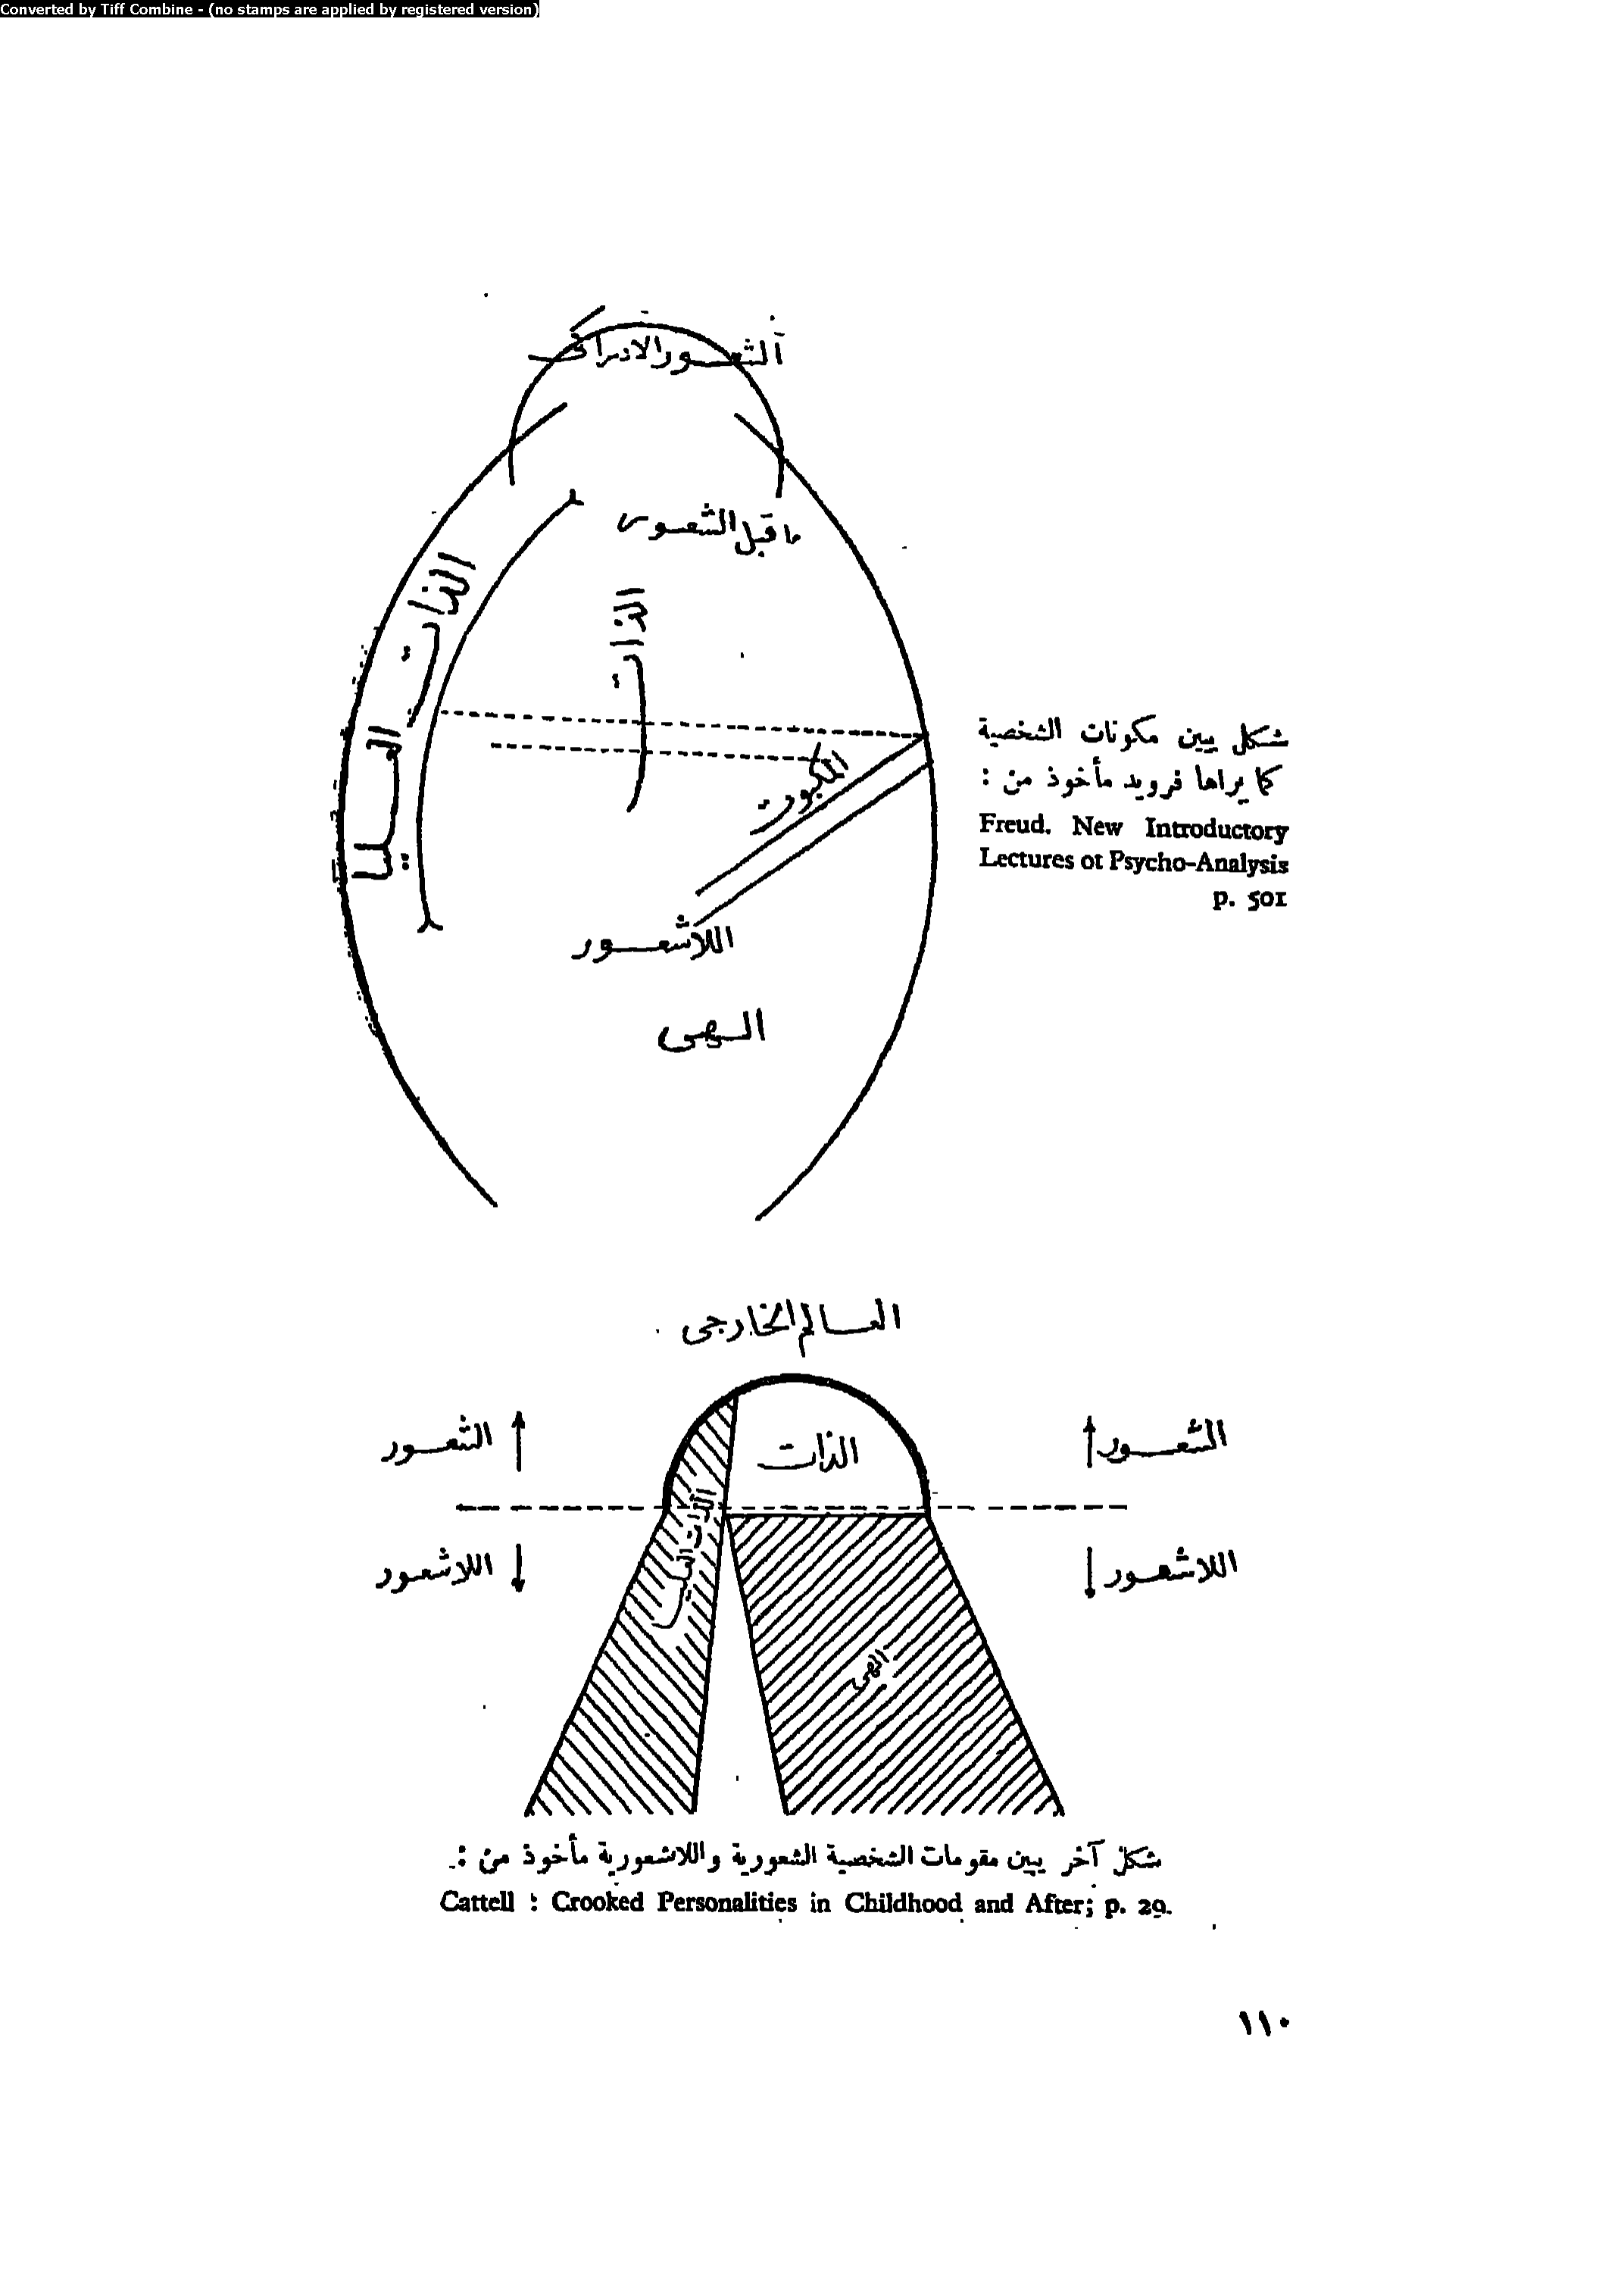 Converted by Tiff Combine - (no stamps are applied by registered version)
الشعور الادراكى
ما قبل الشعور
الذات العليا
الذات
المكبوت
اللاشعور
الهى
شكل يبين مكونات الشخصية
كما يراها فرويد مأخوذ من :
Freud. New Introductory
Lectures ot Psycho-Analysis
p. 501
العالم الخارجى
الشعور
الذات
الشعور
الذات العليا
اللاشعور
اللاشعور
الهى
شكل آخر يبين مقومات الشخصية الشعورية واللاشعورية مأخوذ من :
Cattell : Crooked Personalities in Childhood and After; p. 29.
١١٠